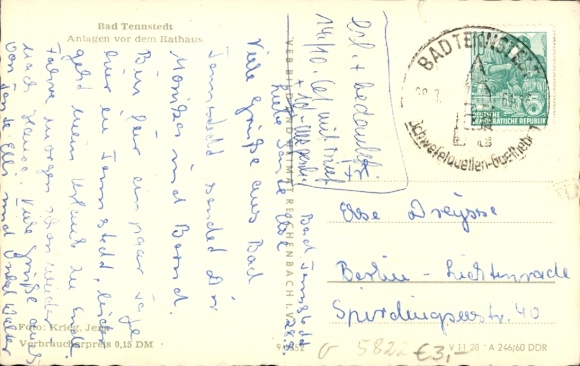 Bad Tennstedt
Anlagen vor dem Rathaus
Bad Tennstedt
Liebe Tante Else
Viele Grüße aus Bad
Tennstedt sendet Dir
Monika und Bernd.
Bin für ein paar Tage
hier in Tennstedt, leider
geht mein Urlaub zu Ende.
Fahre morgen schon wieder
nach Hause. Viele Grüße auch
von Tante Elli und Onkel Walter
Erl. + bedankt
14/10.
Foto: Krieg, Jena
Verbraucherpreis 0,15 DM
VEB BILD UND HEIMAT REICHENBACH I. V.
BAD TENNSTEDT
Schwefelquellen-Goethebad
DEUTSCHE
DEMOKRATISCHE REPUBLIK
Else Dreysse
Berlin - Lichtenrade
Spirdingseestr. 40
V 11 28 A 246/60 DDR
5822
€3,-